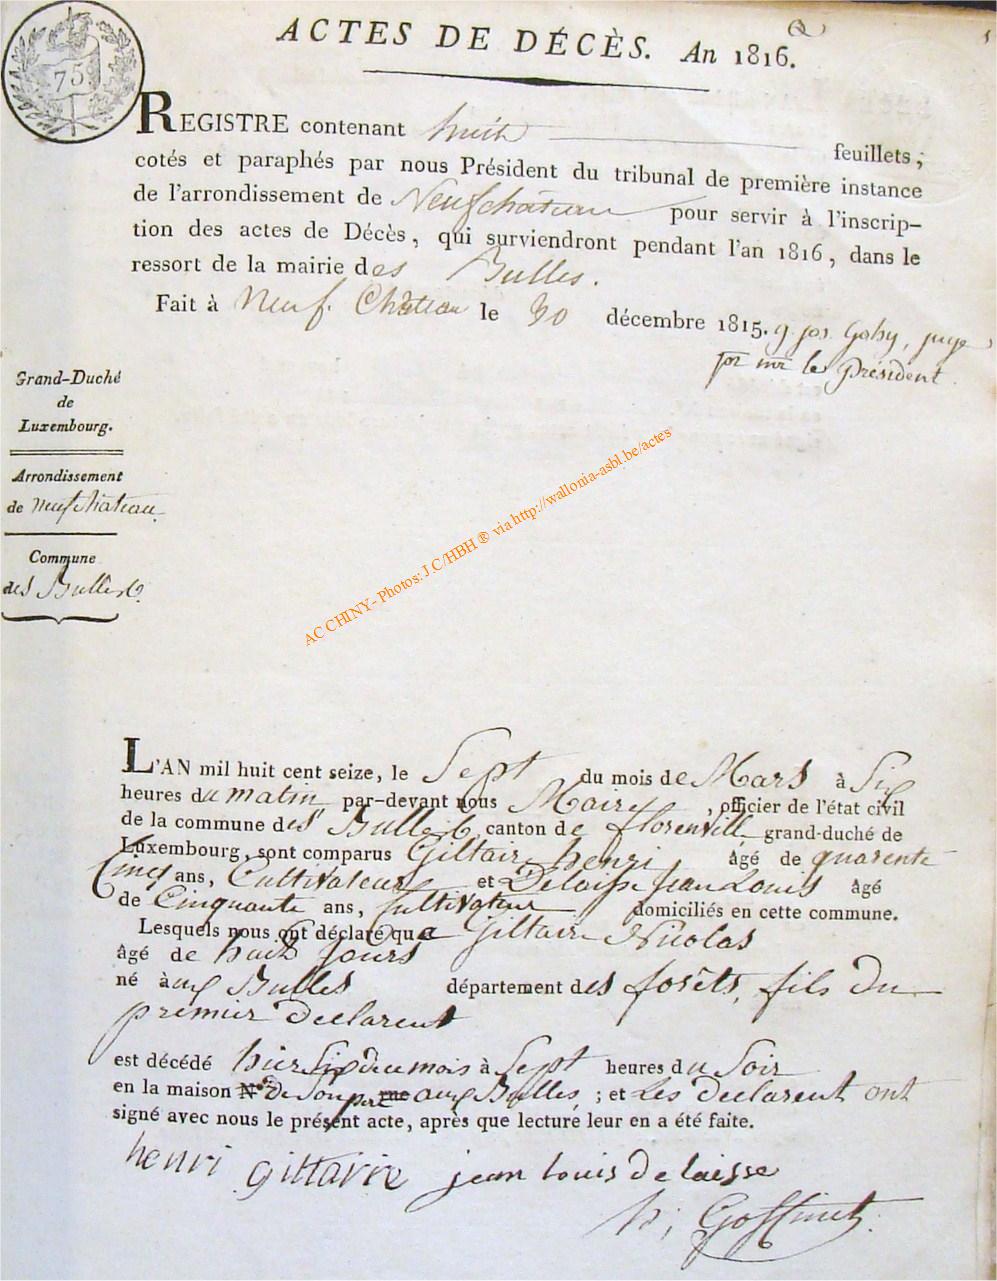 75
ACTES DE DÉCÈS. An 1816.
REGISTRE contenant huit feuillets;
cotés et paraphés par nous Président du tribunal de première instance
de l'arrondissement de Neufchateau pour servir à l'inscrip-
tion des actes de Décès, qui surviendront pendant l'an 1816, dans le
ressort de la mairie des Bulles.
Fait à Neuf. Château le 30 décembre 1815. g jos Goby, juge
pr mr le Président.
Grand-Duché
de
Luxembourg.
Arrondissement
de neufchateau
Commune
des Bulles
AC CHINY - Photos: J.C/HBH ® via http://wallonia-asbl.be/actes
L'AN mil huit cent seize, le Sept du mois de Mars à Six
heures du matin par-devant nous Maire, officier de l'état civil
de la commune des Bulles, canton de florenville grand-duché de
Luxembourg, sont comparus Giltair henri âgé de quarente
Cinq ans, Cultivateur et Delaisse Jean Louis âgé
de Cinquante ans, Cultivateur domiciliés en cette commune.
Lesquels nous ont déclaré que Giltair Nicolas
âgé de huit jours
né aux Bulles département des forêts, fils du
premier declarent
est décédé hier Six du mois à Sept heures du Soir
en la maison N.º de Son pere rue aux Bulles, ; et Les declarent ont
signé avec nous le présent acte, après que lecture leur en a été faite.
henri giltaire jean louis delaisse
h; Goffinet.